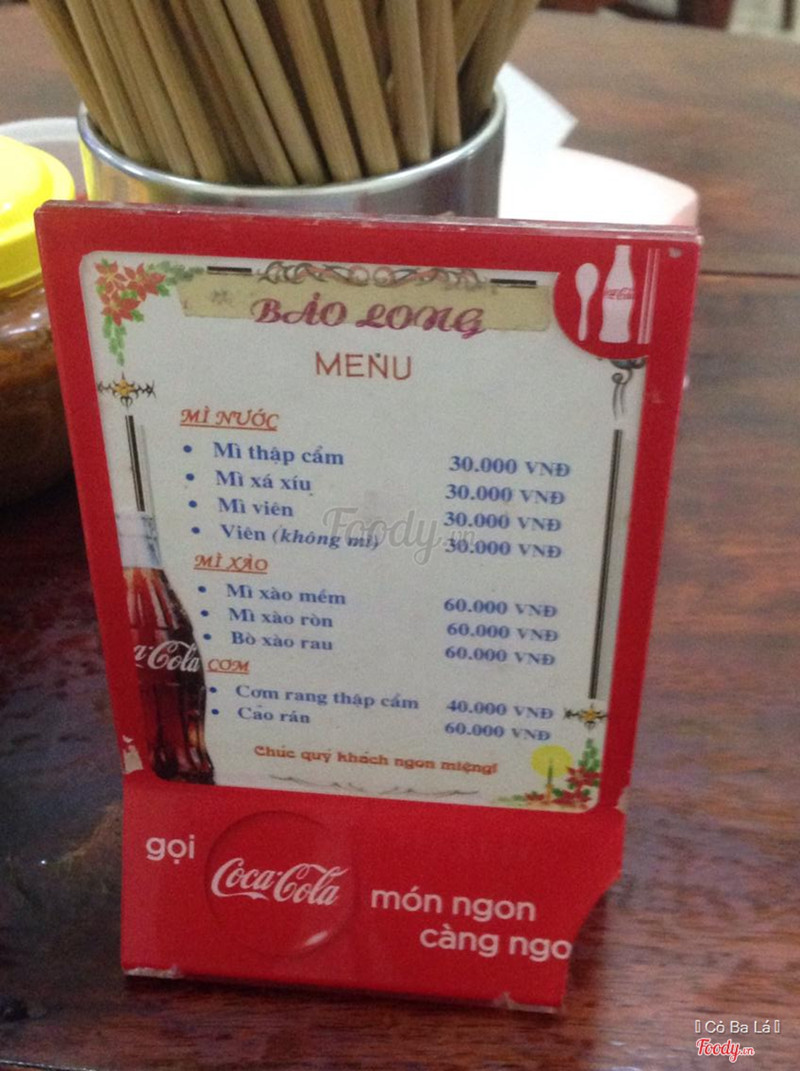 BẢO LONG
MENU
MÌ NƯỚC
• Mì thập cẩm 30.000 VNĐ
• Mì xá xíu 30.000 VNĐ
• Mì viên 30.000 VNĐ
• Viên (không mì) 30.000 VNĐ
Foody.vn
MÌ XÀO
• Mì xào mềm 60.000 VNĐ
• Mì xào ròn 60.000 VNĐ
• Bò xào rau 60.000 VNĐ
CƠM
• Cơm rang thập cẩm 40.000 VNĐ
• Cao rán 60.000 VNĐ
Chúc quý khách ngon miệng!
gọi Coca-Cola món ngon
càng ngo
Cỏ Ba Lá
Foody.vn